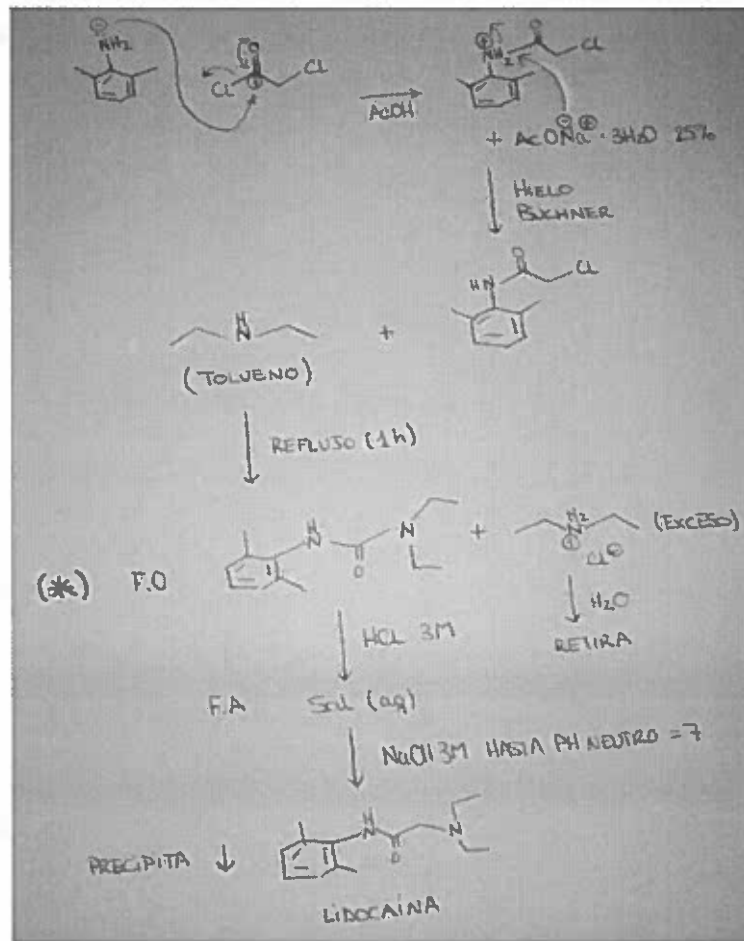 ⊖
NH2
O
Cl
Cl
AcOH
⊕
NH2
O
Cl
+ AcO⊖Na⊕·3H2O 25%
HIELO
BUCHNER
O
HN
Cl
H
N
+
(TOLUENO)
REFLUJO (1h)
(*) F.O
H
N
O
N
+
H2
N
⊕
Cl⊖
(EXCESO)
H2O
RETIRA
HCl 3M
F.A Sal (aq)
NaOH 3M HASTA PH NEUTRO = 7
PRECIPITA ↓
H
N
O
N
LIDOCAÍNA